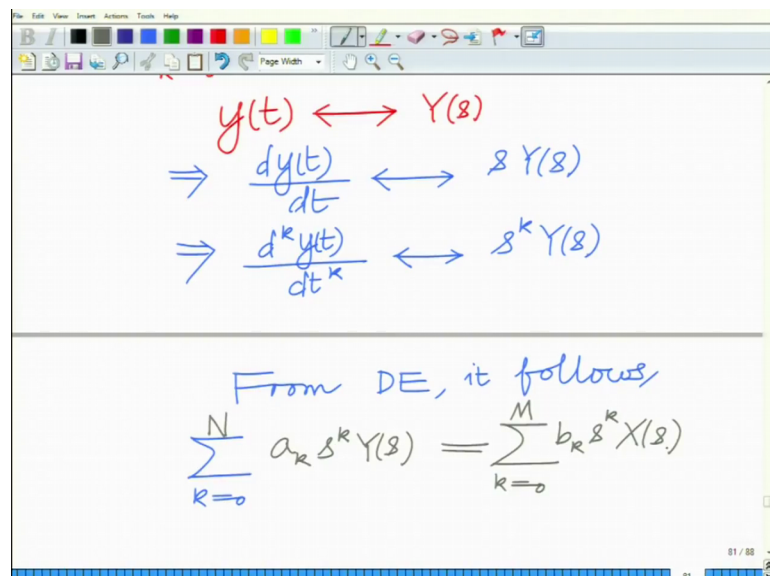 File Edit View Insert Actions Tools Help
B I
Page Width
y(t) ⟷ Y(s)
⇒ dy(t)/dt ⟷ s Y(s)
⇒ d^k y(t)/dt^k ⟷ s^k Y(s)
From DE, it follows,
∑_{k=0}^{N} a_k s^k Y(s) = ∑_{k=0}^{M} b_k s^k X(s)
81 / 88